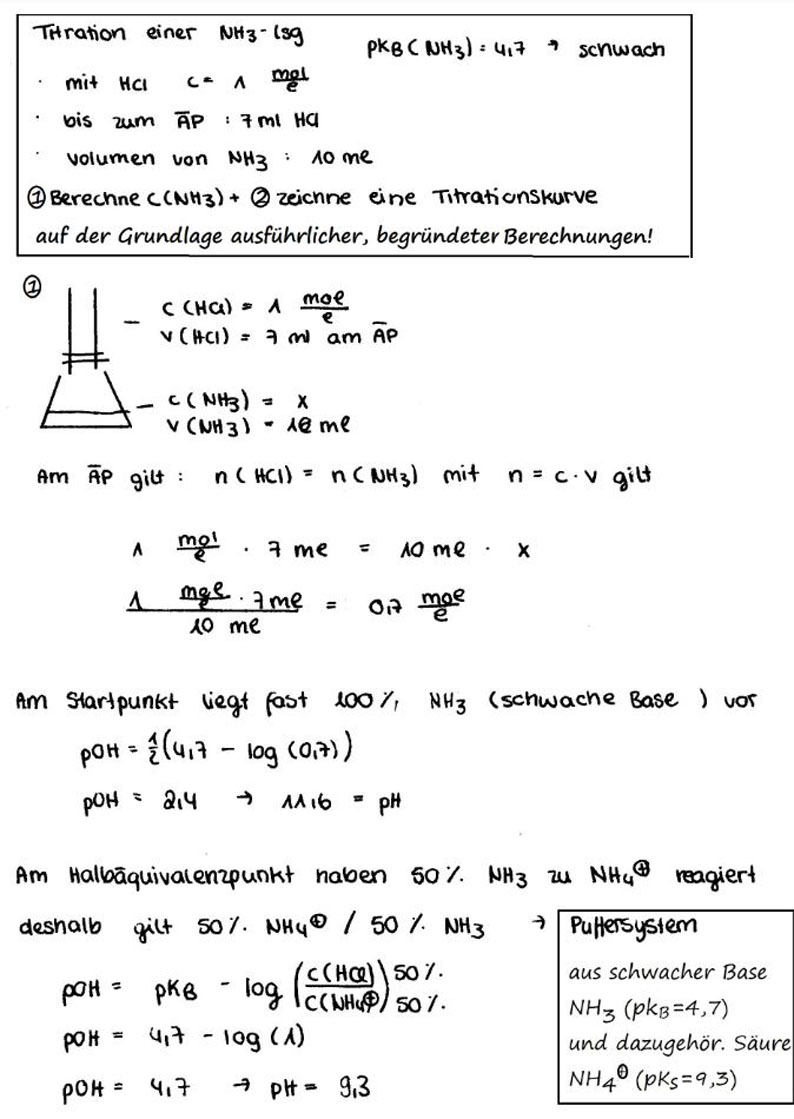 Titration einer NH3-Lsg pKB(NH3)=4,7 → schwach
· mit HCl c= 1 mol/l
· bis zum ÄP : 7ml HCl
· Volumen von NH3 : 10 ml
① Berechne c(NH3) + ② zeichne eine Titrationskurve
auf der Grundlage ausführlicher, begründeter Berechnungen!
①
– c (HCl) = 1 mol/l
V (HCl) = 7 ml am ÄP
– c (NH3) = x
V (NH3) = 10 ml
Am ÄP gilt : n (HCl) = n (NH3) mit n = c · V gilt
1 mol/l · 7 ml = 10 ml · x
(1 mol/l · 7 ml) / 10 ml = 0,7 mol/l
Am Startpunkt liegt fast 100 %, NH3 (schwache Base ) vor
pOH = 1/2 (4,7 – log (0,7))
pOH = 2,4 → 11,6 = pH
Am Halbäquivalenzpunkt haben 50 %. NH3 zu NH4⊕ reagiert
deshalb gilt 50 %. NH4⊕ / 50 %. NH3 → Puffersystem
aus schwacher Base
NH3 (pkB=4,7)
und dazugehör. Säure
NH4⊕ (pKS=9,3)
pOH = pKB – log (c(HCl) / c(NH4⊕)) 50 %. 50 %.
pOH = 4,7 – log (1)
pOH = 4,7 → pH = 9,3